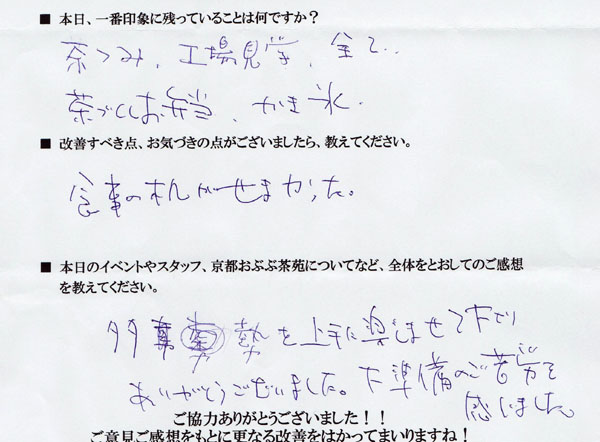 ■ 本日、一番印象に残っていることは何ですか？
茶つみ、工場見学、全て..
茶づくしお弁当、かき氷.
■ 改善すべき点、お気づきの点がございましたら、教えてください。
食事の机がせまかった。
■ 本日のイベントやスタッフ、京都おぶぶ茶苑についてなど、全体をとおしてのご感想
を教えてください。
多勢を上手に楽しませて下さり
ありがとうございました。下準備のご苦労を
感じました。
ご協力ありがとうございました！！
ご意見ご感想をもとに更なる改善をはかってまいりますね！